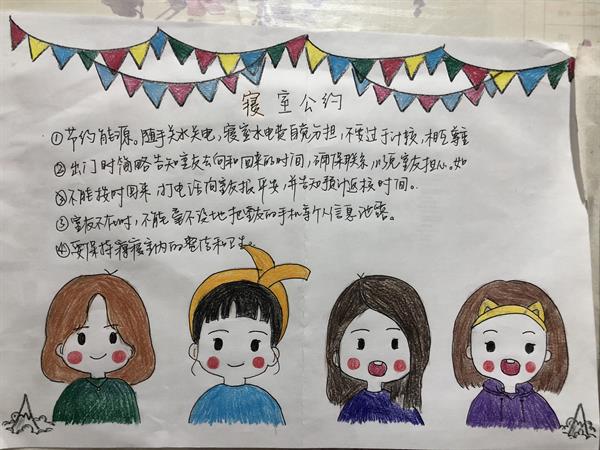 寝室公约
①节约能源。随手关水关电，寝室水电费自觉分担，不要过于计较，相互尊重
②出门时简略告知室友去向和回来的时间，确保联系，以免室友担心。如
③不能按时回来，打电话向室友报平安，并告知预计返校时间。
③室友不在时，不能毫不设地把室友的手机等个人信息泄露。
④要保持寝室内的整洁和卫生。